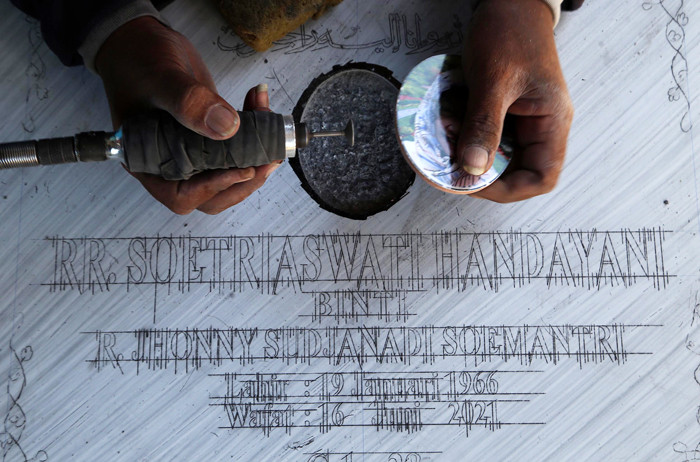 RR. SOETRI ASWATI HANDAYANI
BINTI
R. JHONNY SUDJANADI SOEMANTRI
Lahir : 19 Januari 1966
Wafat : 16 Juni 2021